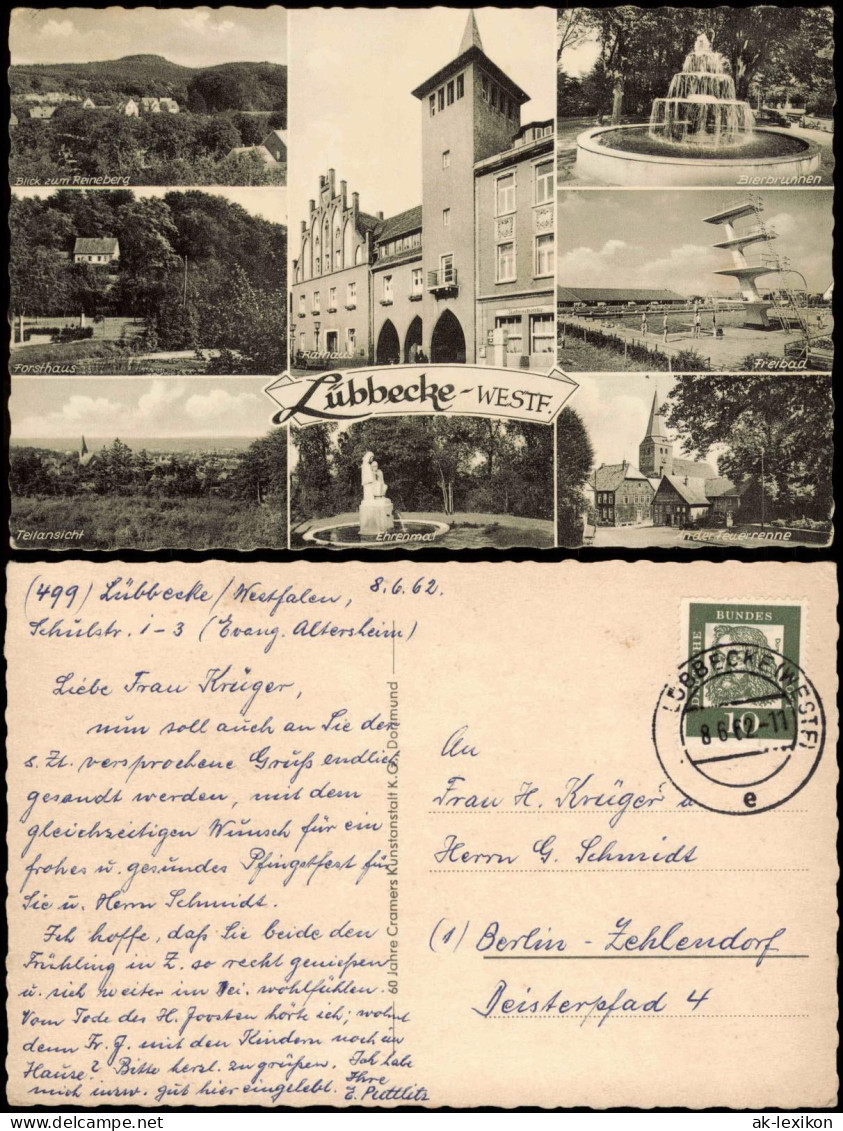 Blick zum Reineberg
Forsthaus
Teilansicht
Rathaus
Lübbecke-WESTF.
Ehrenmal
Bierbrunnen
Freibad
In der Feuerrenne
(499) Lübbecke/Westfalen, 8.6.62.
Schulstr. 1-3 (Evang. Altersheim)
Liebe Frau Krüger,
nun soll auch an Sie der
s. Zt. versprochene Gruß endlich
gesandt werden, mit dem
gleichzeitigen Wunsch für ein
frohes u. gesundes Pfingstfest für
Sie u. Herrn Schmidt.
Ich hoffe, daß Sie beide den
Frühling in Z. so recht genießen
u. sich weiter im wohlfühlen.
Vom Tode des H. Joosten hörte ich; wohnt
denn Fr. J. mit den Kindern noch im
Hause? Bitte herzl. zu grüßen. Ich habe
mich inzw. gut hier eingelebt. Ihre
E. Puttlitz
60 Jahre Cramers Kunstanstalt K.G., Dortmund
BUNDES
10
LÜBBECKE (WESTF)
8.6.62-11
e
An
Frau H. Krüger u
Herrn G. Schmidt
(1) Berlin-Zehlendorf
Deisterpfad 4
www.ansichtskarten-lexikon.de
ak-lexikon